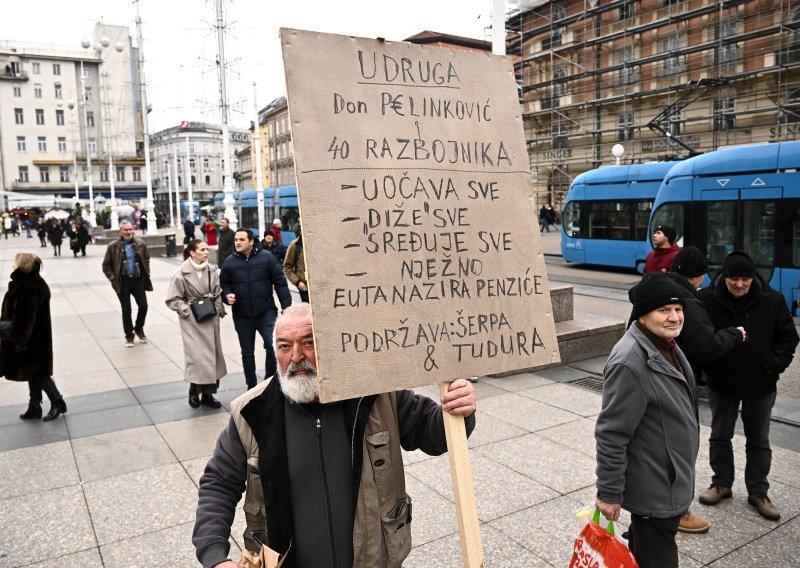 UDRUGA
Don P€LINKOVIĆ
i
40 RAZBOJNIKA
- UOČAVA SVE
- „DIŽE" SVE
- „SREĐUJE SVE
- NJEŽNO
EUTANAZIRA PENZIĆE
PODRŽAVA: ŠERPA
& TUDURA
SINGER